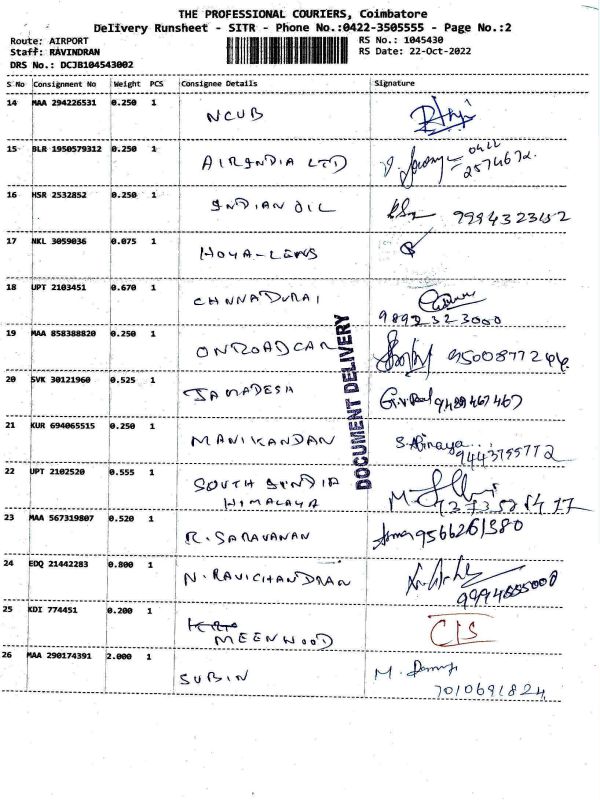 THE PROFESSIONAL COURIERS, Coimbatore
Delivery Runsheet - SITR - Phone No.:0422-3505555 - Page No.:2
Route: AIRPORT RS No.: 1045430
Staff: RAVINDRAN RS Date: 22-Oct-2022
DRS No.: DCJB104543002
S No Consignment No Weight PCS Consignee Details Signature
14 MAA 294226531 0.250 1 NCUB
15 BLR 1950579312 0.250 1 AIRINDIA LTD 0422
2574672.
16 HSR 2532852 0.250 1 INDIAN OIL
17 NKL 3059036 0.075 1 HOYA-LENS
18 UPT 2103451 0.670 1 CHNNADURAI
9892323000
19 MAA 858388820 0.250 1 ONROADCAR
20 SVK 30121960 0.525 1 JAMADESH 9489467467
21 KUR 694065515 0.250 1 MANIKANDAN S.Abinaya
9443755772
22 UPT 2102520 0.555 1 SOUTH INDIA
HIMALAYA
23 MAA 567319807 0.520 1 R. SARAVANAN 9566261380
24 EDQ 21442283 0.800 1 N. RAVICHANDRAN
25 KDI 774451 0.200 1 MEENWOOD CIS
26 MAA 290174391 2.000 1 SUBIN
7010691824
DOCUMENT DELIVERY